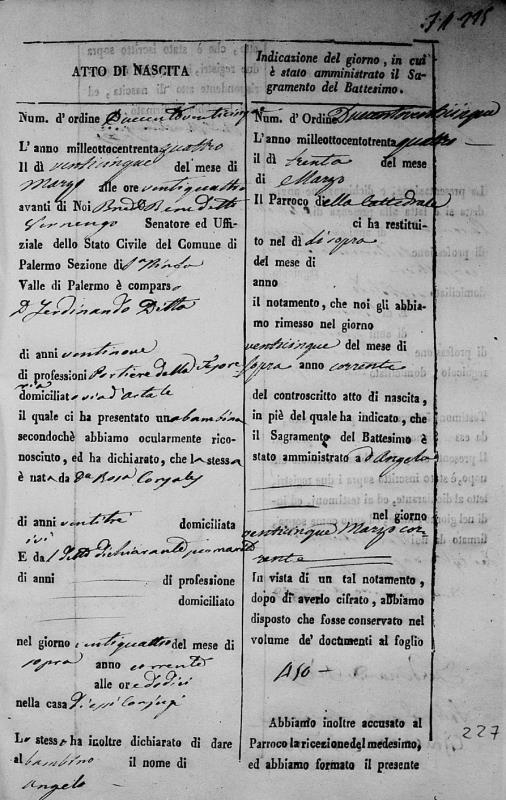 ATTO DI NASCITA
Num. d'ordine Duecentoventicinque
L'anno milleottocentrentaquattro
Il dì venticinque del mese di
Marzo alle ore ventiquattro
avanti di Noi Benedetto
Senatore ed Uffi-
ziale dello Stato Civile del Comune di
Palermo Sezione di
Valle di Palermo è comparso
D. Ferdinando Ditta
di anni ventinove
di professioni Portiere della Tesore-
ria
domiciliato via d'
il quale ci ha presentato una bambina
secondochè abbiamo ocularmente rico-
nosciuto, ed ha dichiarato, che la stessa
è nata da Da Rosa
di anni ventitre domiciliata
ivi
E da l detto dichiarante suo marito
di anni di professione
domiciliato
nel giorno ventiquattro del mese di
sopra anno corrente
alle ore dodici
nella casa Conjugi
Lo stesso ha inoltre dichiarato di dare
al bambino il nome di
Angelo
Indicazione del giorno, in cui
è stato amministrato il Sa-
gramento del Battesimo.
Num. d'Ordine Duecentoventicinque
L'anno milleottocentotrentaquattro
il dì trenta del mese
di Marzo
Il Parroco della Cattedrale
ci ha restitui-
to nel dì di sopra
del mese di
anno
il notamento, che noi gli abbia-
mo rimesso nel giorno
venticinque del mese di
sopra anno corrente
del controscritto atto di nascita,
in piè del quale ha indicato, che
il Sagramento del Battesimo è
stato amministrato a d Angelo
nel giorno
venticinque Marzo cor-
rente
In vista di un tal notamento,
dopo di averlo cifrato, abbiamo
disposto che fosse conservato nel
volume de' documenti al foglio
450
Abbiamo inoltre accusato al
Parroco la ricezione del medesimo,
ed abbiamo formato il presente
227